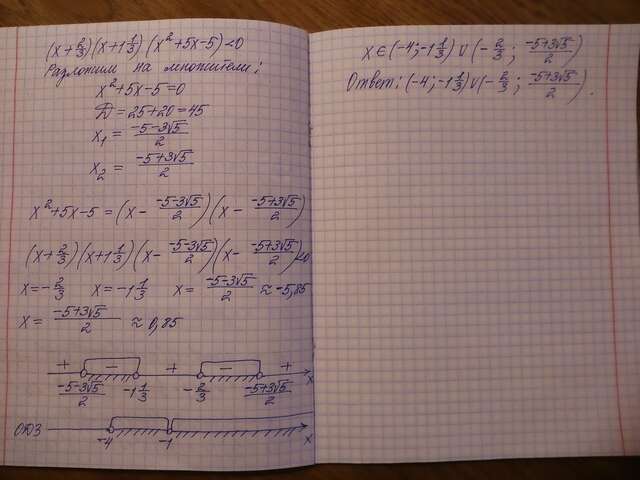 (x+2/3)(x+1 1/3)(x²+5x-5)<0
Разложим на множители:
x²+5x-5=0
Д=25+20=45
x₁ = (-5-3√5)/2
x₂ = (-5+3√5)/2
x²+5x-5=(x- (-5-3√5)/2)(x- (-5+3√5)/2)
(x+2/3)(x+1 1/3)(x- (-5-3√5)/2)(x- (-5+3√5)/2)<0
x=-2/3 x=-1 1/3 x= (-5-3√5)/2 ≈ -5,85
x= (-5+3√5)/2 ≈ 0,85
+ - + - +
(-5-3√5)/2 -1 1/3 -2/3 (-5+3√5)/2 x
ОДЗ -4 -1 x
x∈(-4;-1 1/3)∪(-2/3; (-5+3√5)/2)
Ответ: (-4;-1 1/3)∪(-2/3; (-5+3√5)/2).